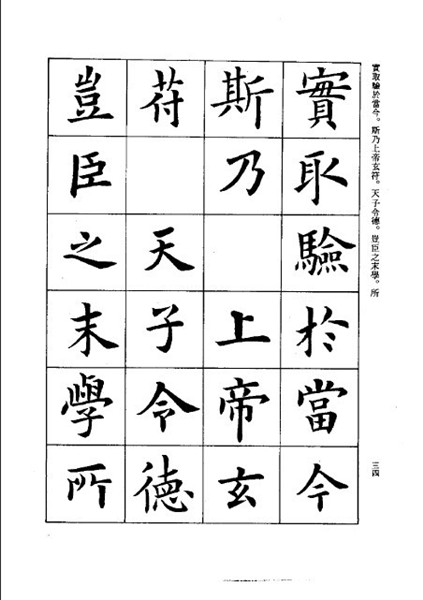 實取驗於當今。斯乃上帝玄符。天子令德。豈臣之末學。所
三四
實取驗於當今
斯乃上帝玄
苻天子令德
豈臣之末學所